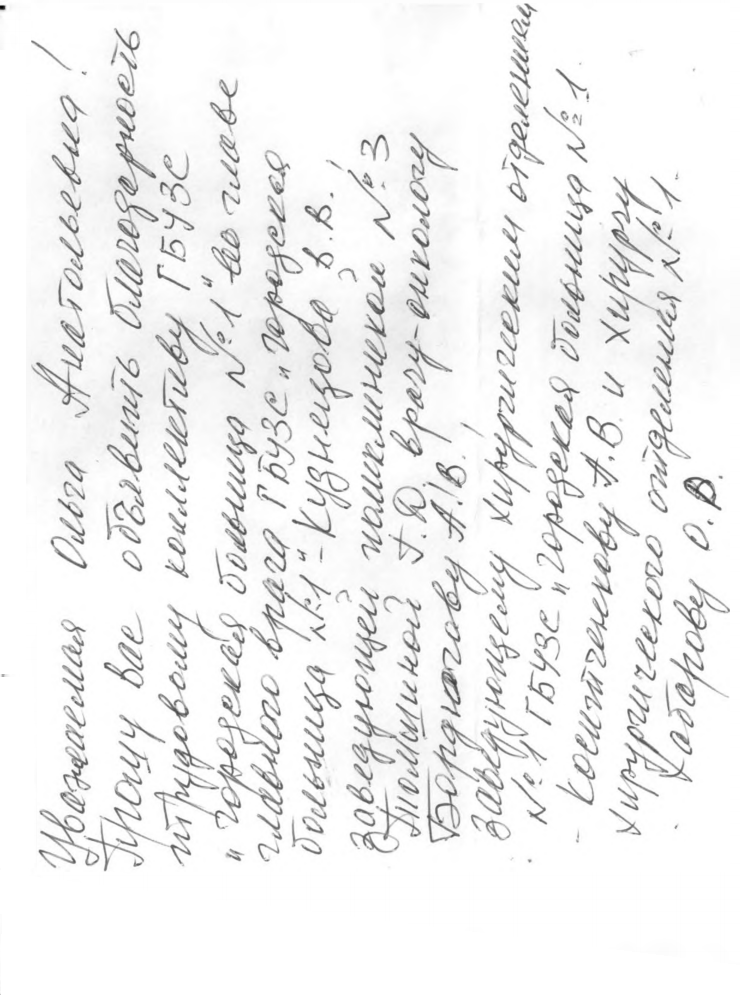 Уважаемая Ольга Анатольевна!
Прошу Вас объявить благодарность
трудовому коллективу ГБУЗС
"городская больница №1" во главе
главного врача ГБУЗС "городская
больница №1" - Кузнецова В.В.!
Заведующей поликлиникой №3
Г.Д врачу-онкологу
А.В.!
Заведующему хирургическим отделением
№1 ГБУЗС "городская больница №1.
- Коситченкову А.В. и хирургу
хирургического отделения №1.
- Хаборову О.В.